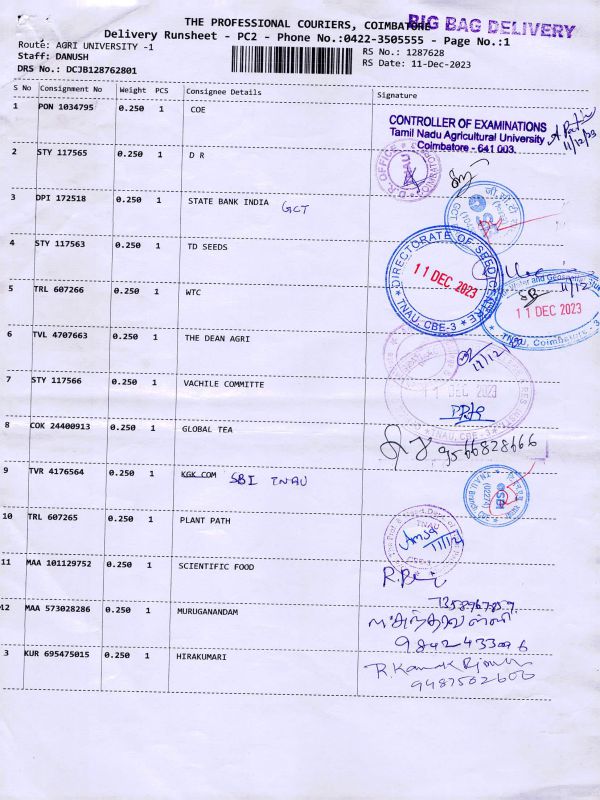 THE PROFESSIONAL COURIERS, COIMBATORE
BIG BAG DELIVERY
Delivery Runsheet - PC2 - Phone No.:0422-3505555 - Page No.:1
Route: AGRI UNIVERSITY -1
RS No.: 1287628
Staff: DANUSH
RS Date: 11-Dec-2023
DRS No.: DCJB128762801
S No Consignment No Weight PCS Consignee Details Signature
1 PON 1034795 0.250 1 COE
CONTROLLER OF EXAMINATIONS
Tamil Nadu Agricultural University
Coimbatore - 641 003.
11/12/23
2 STY 117565 0.250 1 D R
3 DPI 172518 0.250 1 STATE BANK INDIA GCT
4 STY 117563 0.250 1 TD SEEDS
DIRECTORATE OF SEED CENTRE
11 DEC 2023
TNAU, CBE-3
5 TRL 607266 0.250 1 WTC
11/12
11 DEC 2023
TNAU, Coimbatore - 3
6 TVL 4707663 0.250 1 THE DEAN AGRI
11/12
7 STY 117566 0.250 1 VACHILE COMMITTE
11 DEC 2023
TNAU, CBE-3
8 COK 24400913 0.250 1 GLOBAL TEA
9566828666
9 TVR 4176564 0.250 1 KGK COM SBI TNAU
10 TRL 607265 0.250 1 PLANT PATH
TNAU
11/12
11 MAA 101129752 0.250 1 SCIENTIFIC FOOD
12 MAA 573028286 0.250 1 MURUGANANDAM
9842433096
3 KUR 695475015 0.250 1 HIRAKUMARI
9487502600